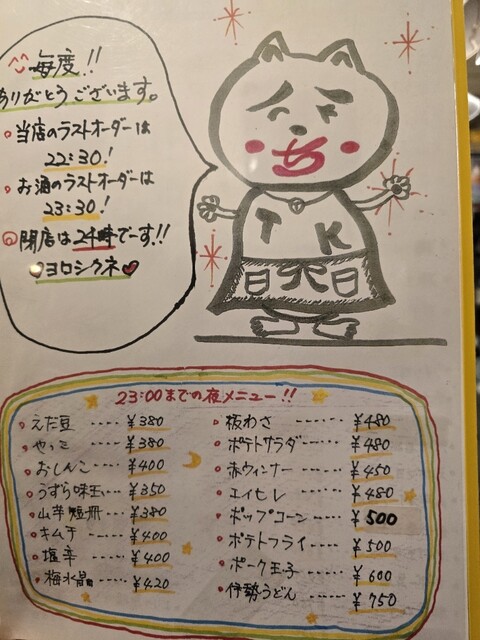 毎度!!
ありがとうございます。
当店のラストオーダーは
22:30!
お酒のラストオーダーは
23:30!
閉店は24時でーす!!
ヨロシクネ
T K
日 火 日
23:00までの夜メニュー!!
えだ豆 ---- ¥380
やっこ ---- ¥380
おしんこ ---- ¥400
うずら味玉 --- ¥350
山芋短冊 --- ¥380
キムチ ---- ¥400
塩辛 ----- ¥400
梅水晶 ---- ¥420
板わさ ------ ¥480
ポテトサラダ --- ¥480
赤ウィンナー ---- ¥450
エイヒレ ----- ¥480
ポップコーン ---- ¥500
ポテトフライ ---- ¥500
ポーク玉子 ---- ¥600
伊勢うどん ---- ¥750